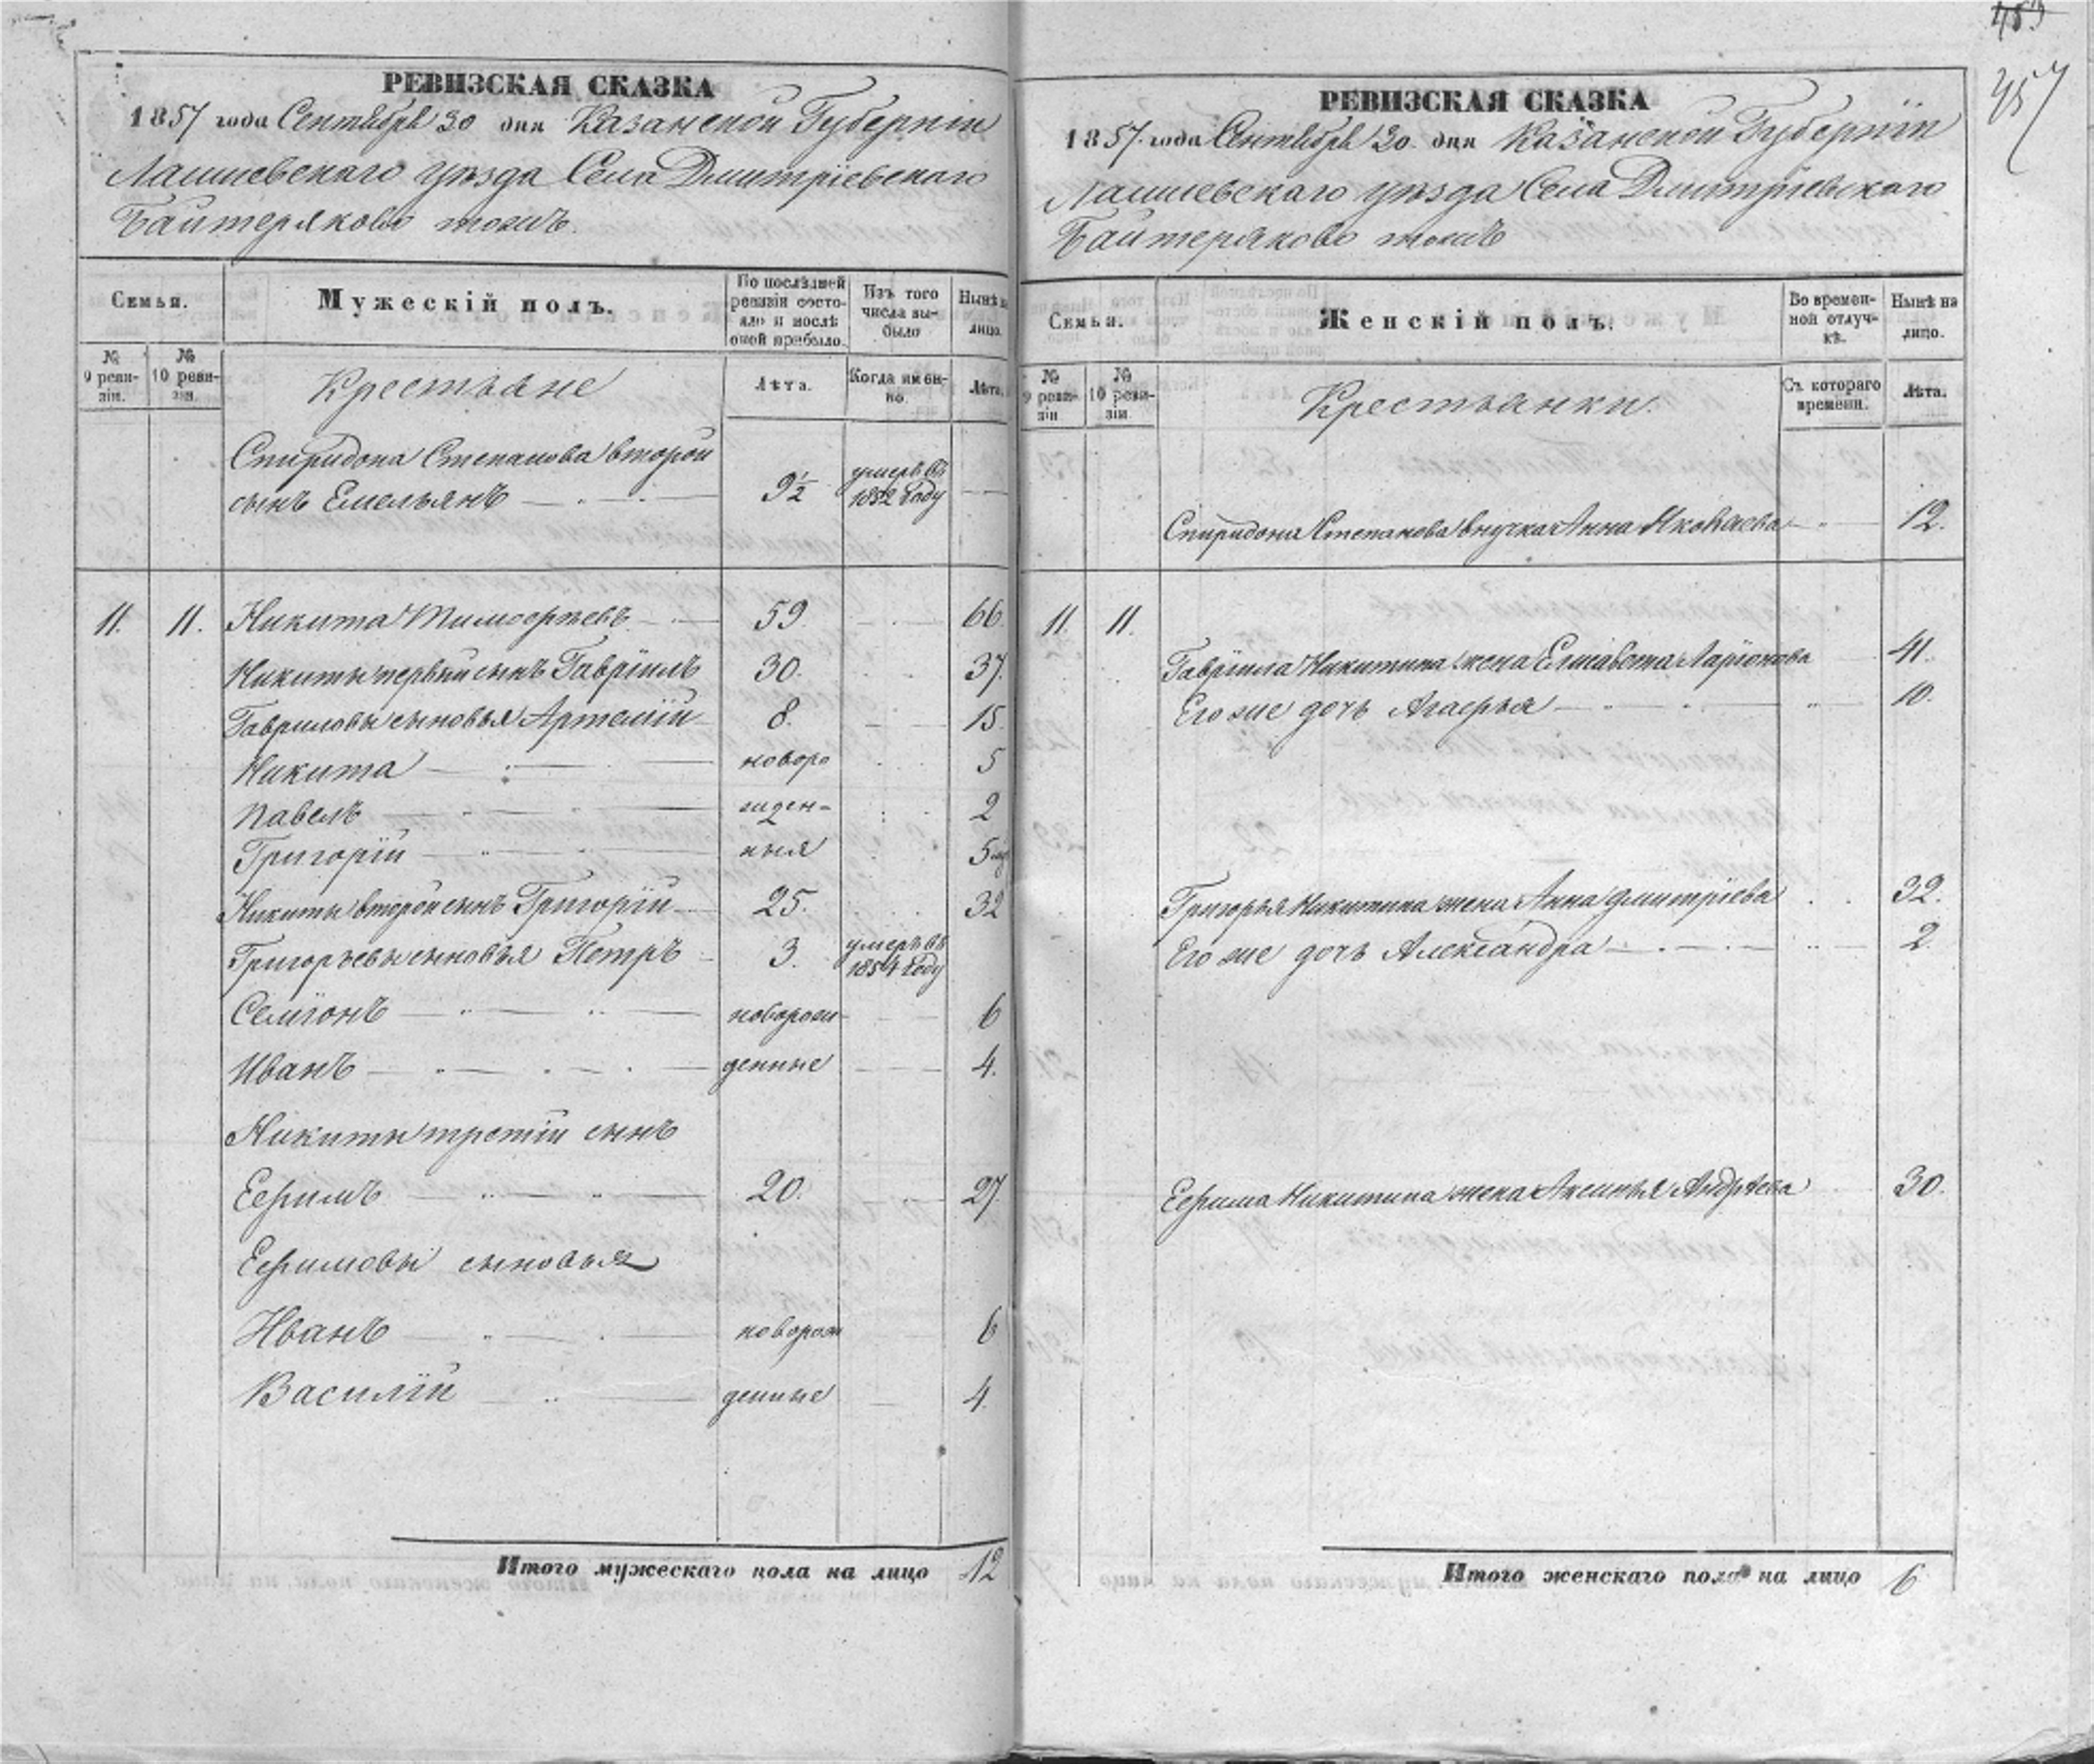 РЕВИЗСКАЯ СКАЗКА
1857 года Сентября 30 дня Казанской Губерніи
Лаишевскаго уѣзда Села Дмитріевскаго
Байтеряково тожъ.
Семья.
Мужескій полъ.
По послѣдней ревизіи состояло и послѣ оной прибыло.
Изъ того числа выбыло
Нынѣ на лицо.
№ 9 ревизіи.
№ 10 ревизіи.
Крестьяне
Лѣта.
Когда именно.
Лѣта.
Спиридона Степанова второй
сынъ Емельянъ 9½ умеръ въ 1852 году
11. 11. Никита Тимофѣевъ 59 66
Никиты первый сынъ Гавріилъ 30. 37.
Гавриловы сыновья Артемій 8. 15.
Никита новоро 5
Павелъ жден- 2
Григорій ныя 5
Никиты второй сынъ Григорій 25. 32
Григорьевы сыновья Петръ 3. умеръ въ 1854 году
Семіонъ новорож 6
Иванъ денные 4.
Никиты третій сынъ
Ефимъ 20. 27.
Ефимовы сыновья
Иванъ новорож 6
Василій денные 4.
Итого мужескаго пола на лицо 12
457
РЕВИЗСКАЯ СКАЗКА
1857 года Сентября 30 дня Казанской Губерніи
Лаишевскаго уѣзда Села Дмитріевскаго
Байтеряково тожъ
Семья.
Женскій полъ.
Во временной отлучкѣ.
Нынѣ на лицо.
№ 9 ревизіи
№ 10 ревизіи.
Крестьянки.
Съ котораго времени.
Лѣта.
Спиридона Степанова внучка Анна Яковлева 12.
11. 11.
Гавріила Никитина жена Елисавета Ларіонова 41.
Его же дочь Агафья 10.
Григорья Никитина жена Анна Дмитріева 32.
Его же дочь Александра 2.
Ефима Никитина жена Аксинья Андрѣева 30.
Итого женскаго пола на лицо 6